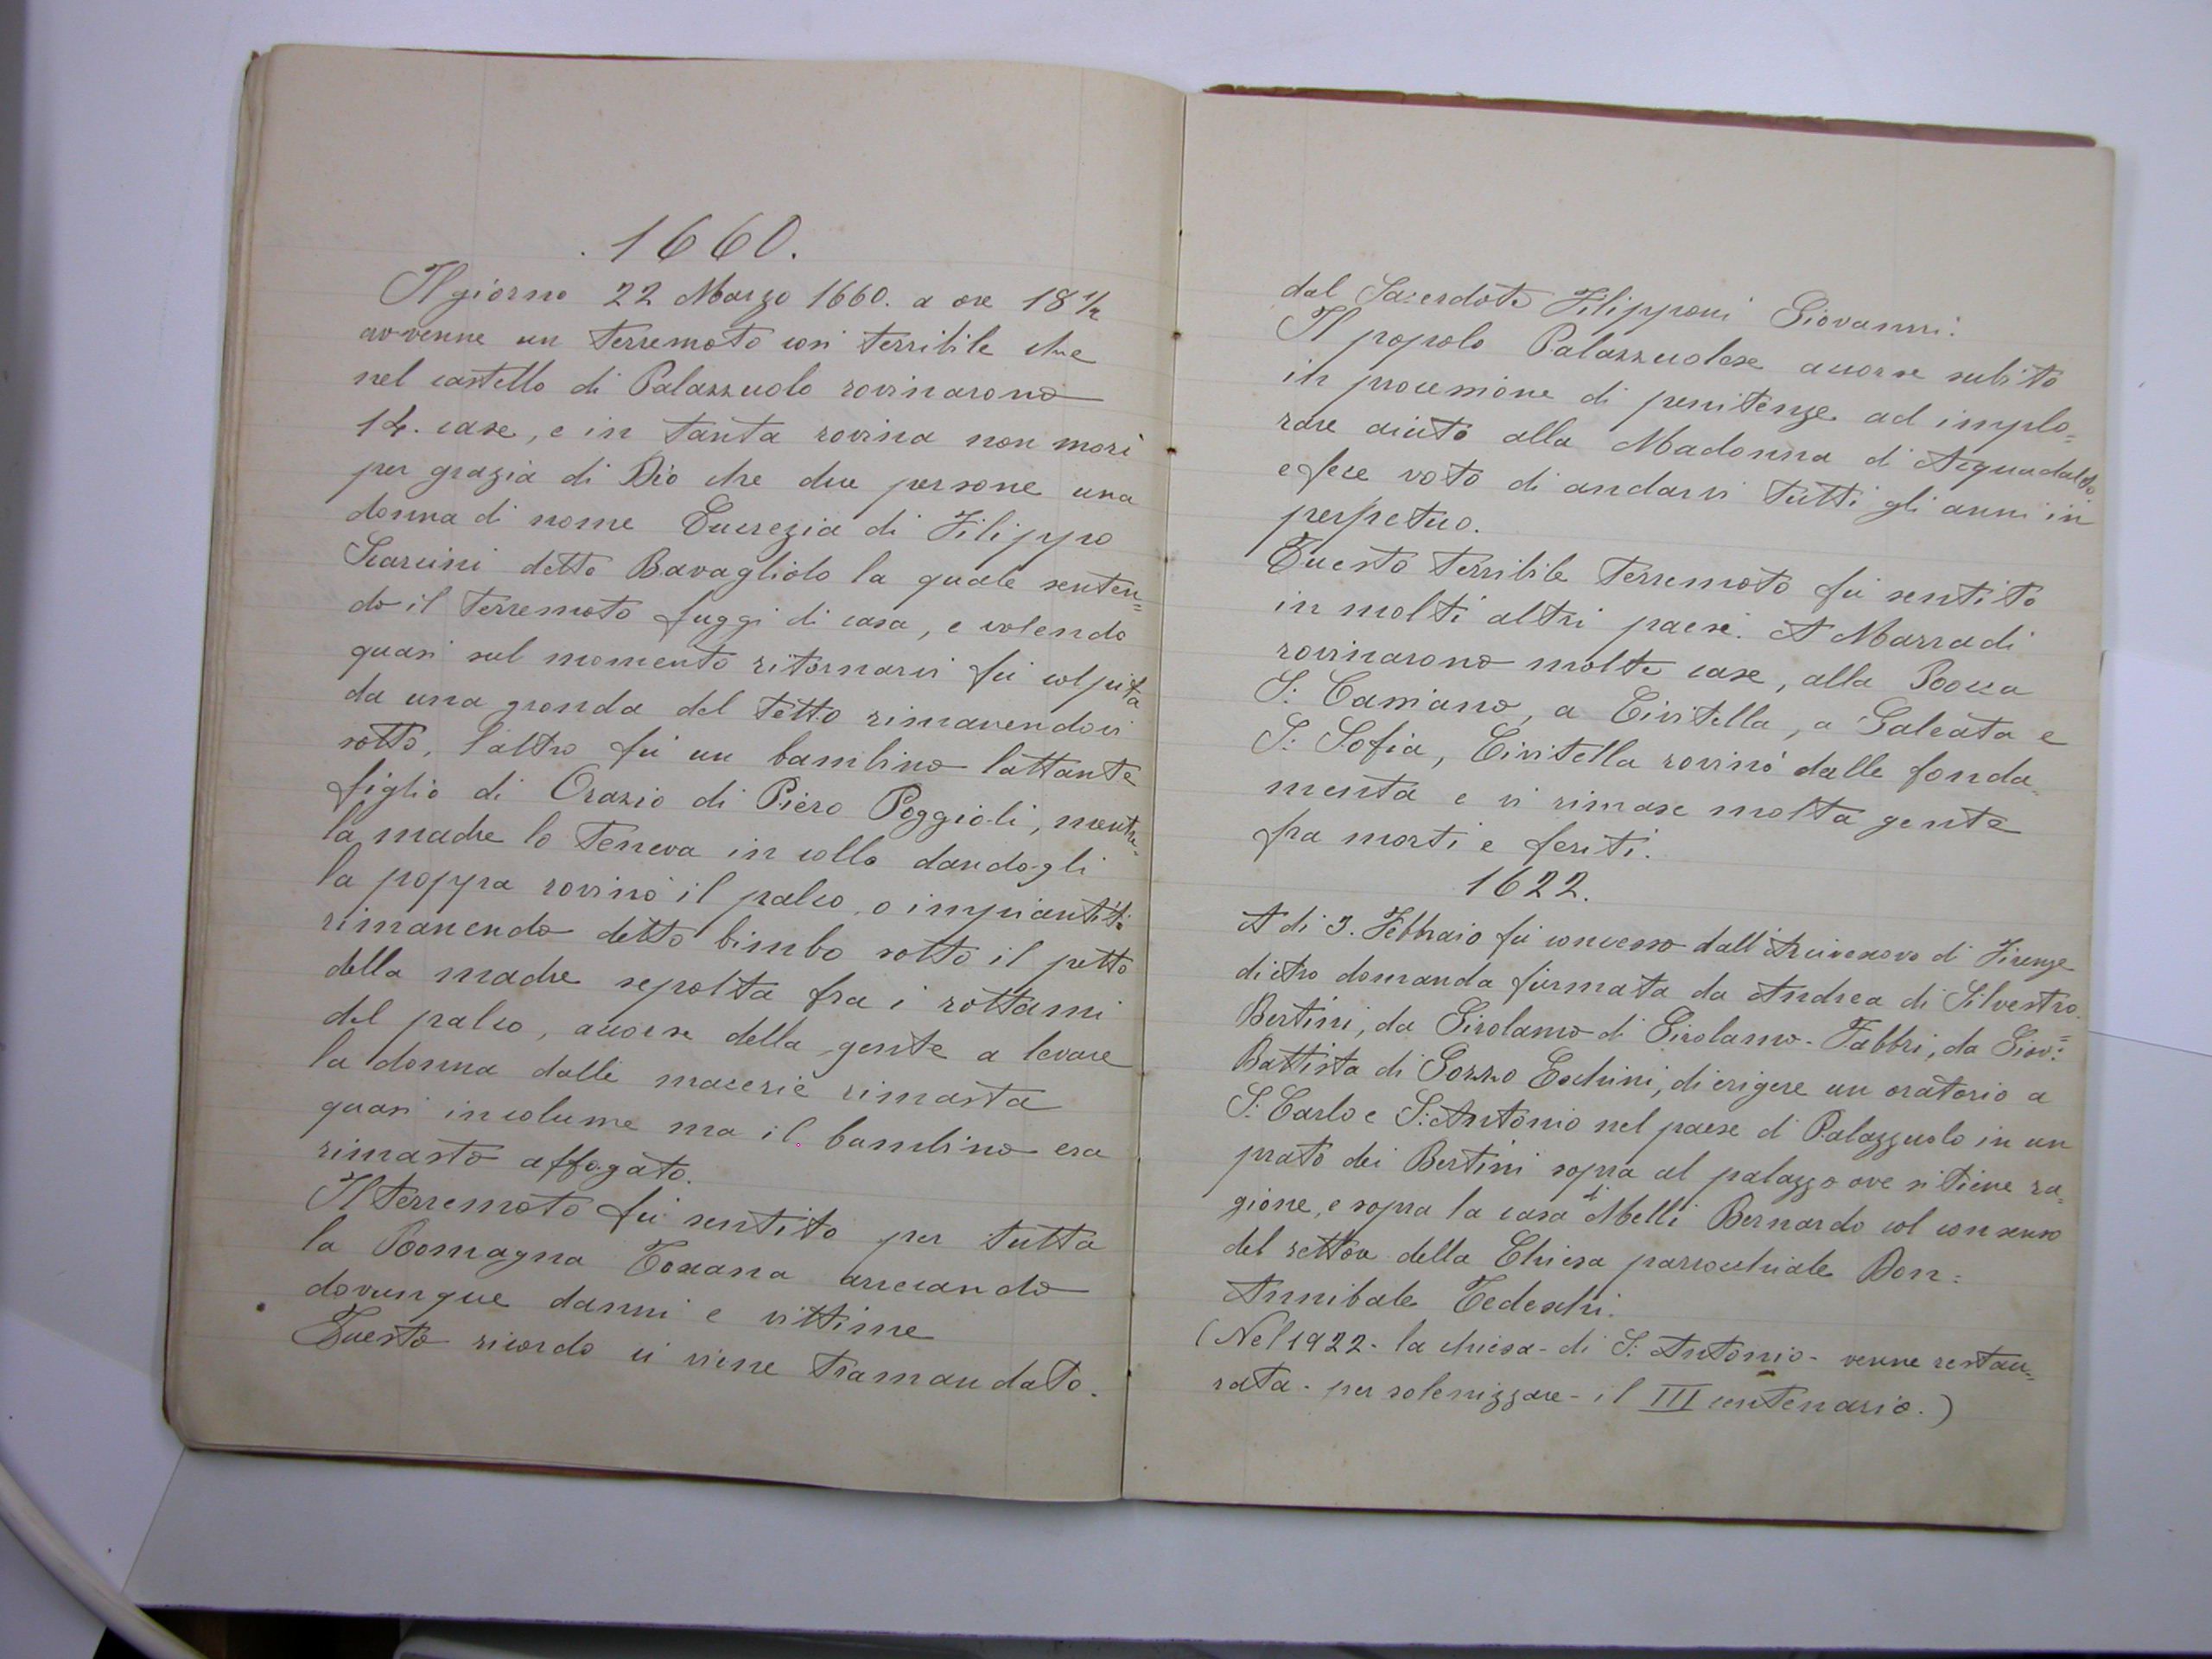 1660.
Il giorno 22 Marzo 1660. a ore 18 1/2
avvenne un terremoto cosi terribile che
nel castello di Palazzuolo rovinarono
14. case, e in tanta rovina non morì
per grazia di Dio che due persone una
donna di nome Lucrezia di Filippo
Scarcini detto Bavagliolo la quale senten=
do il terremoto fuggi di casa, e volendo
quasi sul momento ritornarvi fù colpita
da una gronda del tetto rimanendovi
sotto, l'altro fù un bambino lattante
figlio di Orazio di Piero Poggioli, mentre
la madre lo teneva in collo dandogli
la poppa rovinò il palco, o impiantito
rimanendo detto bimbo sotto il petto
della madre sepolta fra i rottami
del palco, accorse della gente a levare
la donna dalle macerie rimasta
quasi incolume ma il bambino era
rimasto affogato.
Il terremoto fù sentito per tutta
la Romagna Toscana arrecando
dovunque danni e vittime
Questo ricordo ci viene tramandato.
dal Sacerdote Filipponi Giovanni.
Il popolo Palazzuolese accorse subito
in processione di penitenze ad implo=
rare aiuto alla Madonna di Acquadalto
e fece voto di andarvi tutti gli anni in
perpetuo.
Questo terribile terremoto fù sentito
in molti altri paesi. A Marradi
rovinarono molte case, alla Rocca
S. Casciano, a Civitella, a Galeata e
S. Sofia, Civitella rovinò dalle fonda=
menta e vi rimase molta gente
fra morti e feriti.
1622.
A di 3. Febbraio fù concesso dall'Arcivescovo di Firenze
dietro domanda firmata da Andrea di Silvestro
Bertini, da Girolamo di Girolamo - Fabbri, da Giov:=
Battista di Gozzo Eschini, di erigere un oratorio a
S. Carlo e S. Antonio nel paese di Palazzuolo in un
prato dei Bertini sopra al palazzo ove si tiene ra=
gione, e sopra la casa di Melli Bernardo col consenso
del rettore della Chiesa parrocchiale Don=
Annibale Tedeschi.
(Nel 1922 - la chiesa - di S. Antonio - venne restau=
rata - per solenizzare - il III centenario.)